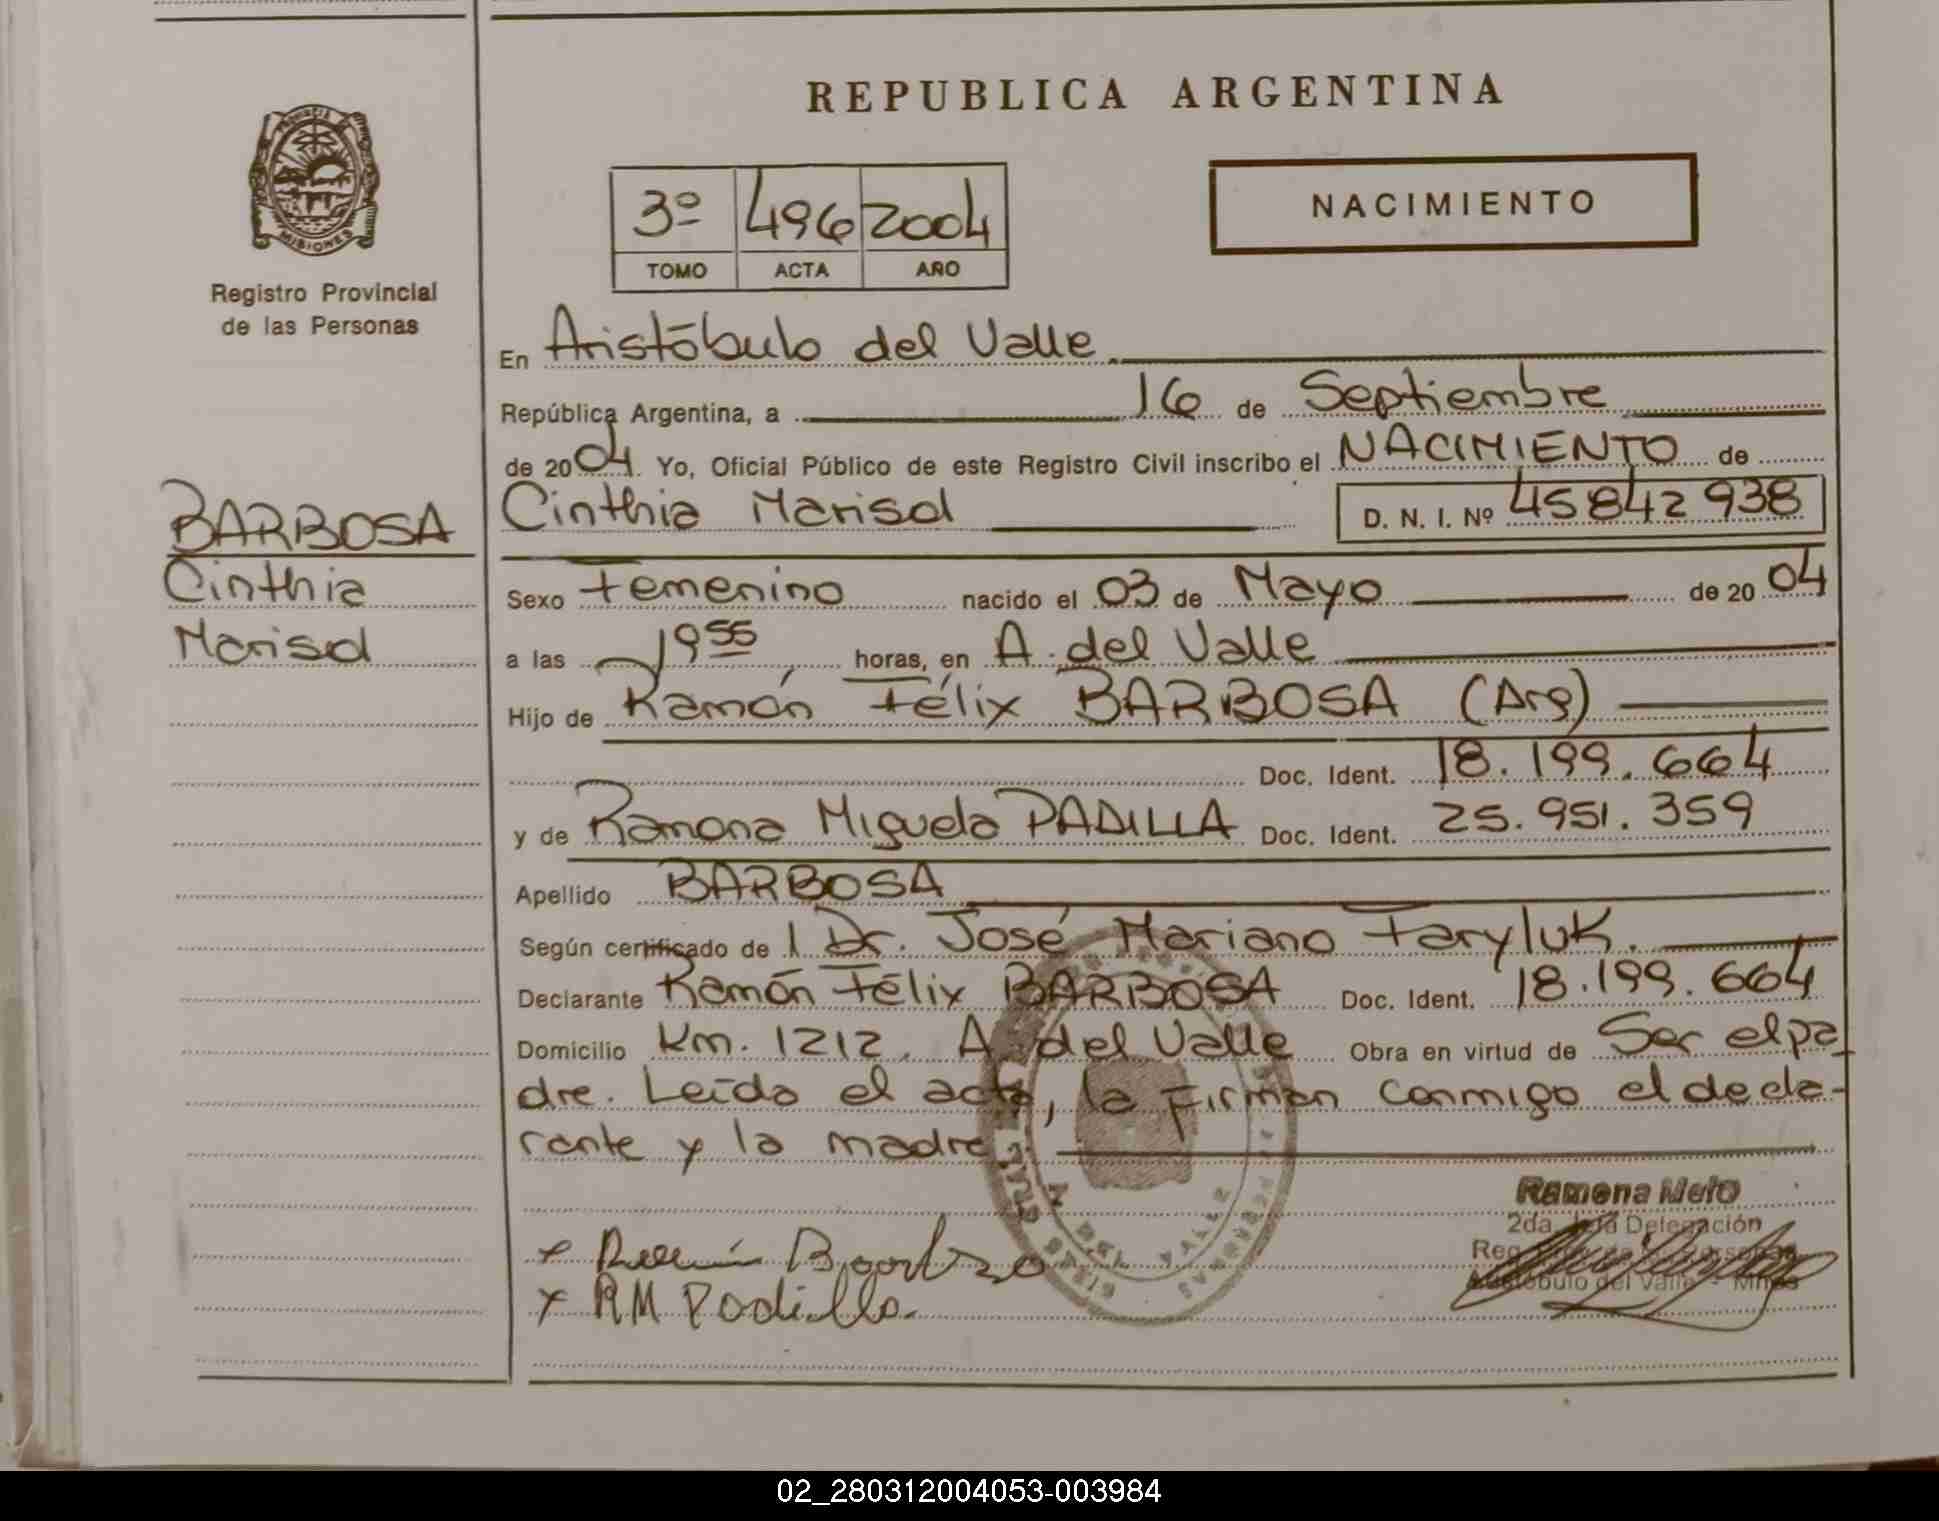 REPUBLICA ARGENTINA
PROVINCIA DE
MISIONES
Registro Provincial
de las Personas
3º 496 2004
TOMO ACTA AÑO
NACIMIENTO
En Aristóbulo del Valle
República Argentina, a 16 de Septiembre
de 2004. Yo, Oficial Público de este Registro Civil inscribo el NACIMIENTO de
Cinthia Marisol D. N. I. Nº 45842938
BARBOSA
Cinthia
Marisol
Sexo Femenino nacido el 03 de Mayo de 2004
a las 19 55 horas, en A. del Valle
Hijo de Ramón Félix BARBOSA (Arg)
Doc. Ident. 18.199.664
y de Ramona Miguela PADILLA Doc. Ident. 25.951.359
Apellido BARBOSA
Según certificado de l Dr. José Mariano Faryluk.
Declarante Ramón Félix BARBOSA Doc. Ident. 18.199.664
Domicilio Km. 1212. A. del Valle Obra en virtud de Ser el pa
dre. Leída el acta, la firman conmigo el decla-
rante y la madre.
Ramona Melo
2da. Jefa Delegación
Aristóbulo del Valle - Mnes
x Ramón Barboza
x RM Padilla.
02_280312004053-003984